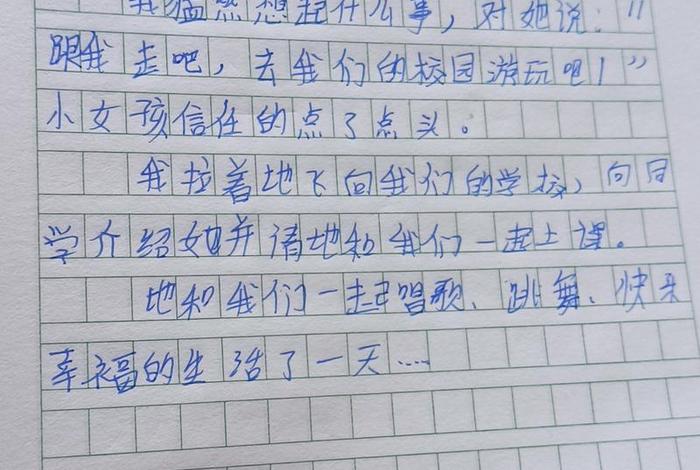 我猛然想起什么事，对她说："
跟我走吧，去我们的校园游玩吧！"
小女孩信任的点了点头。
我拉着地飞向我们的学校，向同
学介绍她并请地和我们一起上课。
地和我们一起唱歌、跳舞、快乐
幸福的生活了一天……